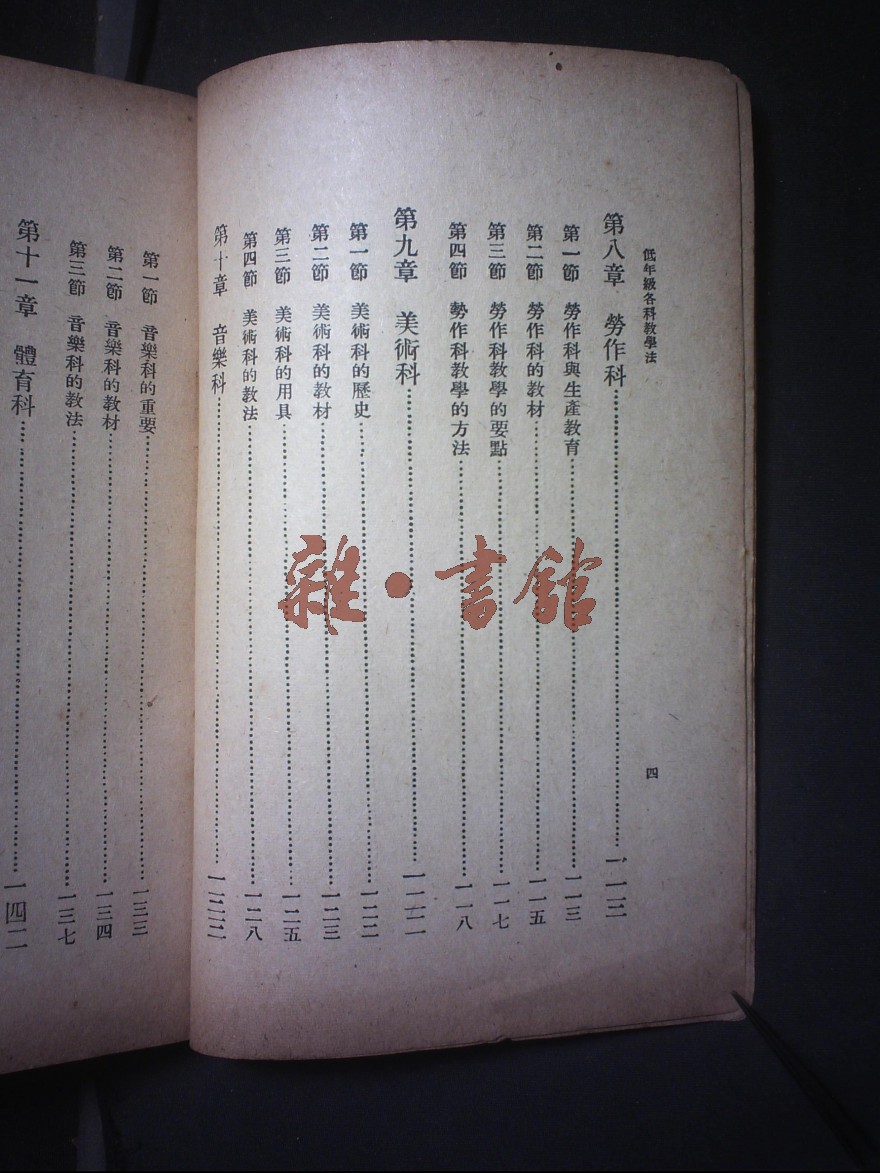 低年級各科教學法
四
第八章 勞作科……一一三
第一節 勞作科與生產教育……一一三
第二節 勞作科的教材……一一五
第三節 勞作科教學的要點……一一七
第四節 勢作科教學的方法……一一八
第九章 美術科……一二二
第一節 美術科的歷史……一二二
第二節 美術科的教材……一二三
第三節 美術科的用具……一二五
第四節 美術科的教法……一二八
第十章 音樂科……一三三
第一節 音樂科的重要……一三三
第二節 音樂科的教材……一三四
第三節 音樂科的教法……一三七
第十一章 體育科……一四二
雜·書館